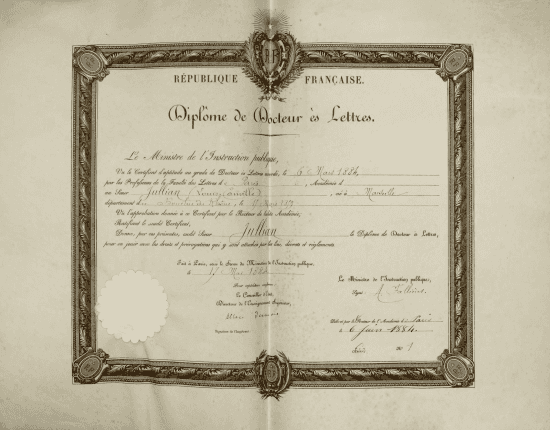 RÉPUBLIQUE FRANÇAISE.
Diplôme de Docteur ès Lettres.
Le Ministre de l'Instruction publique,
Vu le Certificat d'aptitude au grade de Docteur ès Lettres accordé, le 6 Mars 1884,
par les Professeurs de la Faculté des Lettres de Paris, Académie d
au Sieur Jullian né à Marseille
département des Bouches du Rhône, le 15 Mars 1859
Vu l'approbation donnée à ce Certificat par le Recteur de ladite Académie;
Ratifiant le susdit Certificat,
Donne, par ces présentes, audit Sieur Jullian le Diplôme de Docteur ès Lettres,
pour en jouir avec les droits et prérogatives qui y sont attachés par les lois, décrets et règlements.
Fait à Paris, sous le Sceau du Ministère de l'Instruction publique,
le Mai 1884
Le Ministre de l'Instruction publique,
Signé
Pour expédition conforme:
Le Conseiller d'État,
Directeur de l'Enseignement Supérieur,
Signature de l'Impétrant:
Délivré par le Recteur de l'Académie de Paris
le 6 Juin 1884